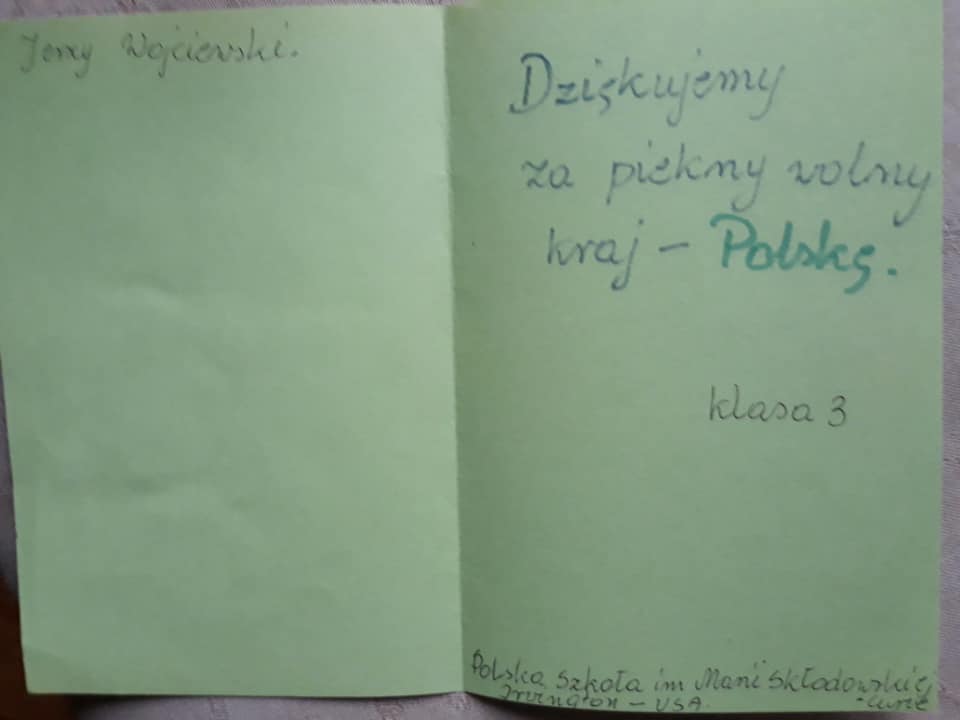 Jerzy Wojciewski.
Dziękujemy
za piękny wolny
kraj – Polskę.
klasa 3
Polska Szkoła im Marii Skłodowskiej
-Curie
Irvington – USA.